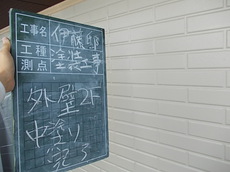 工事名 伊藤邸
工種 塗装工事
測点
外壁2F
中塗り
完了